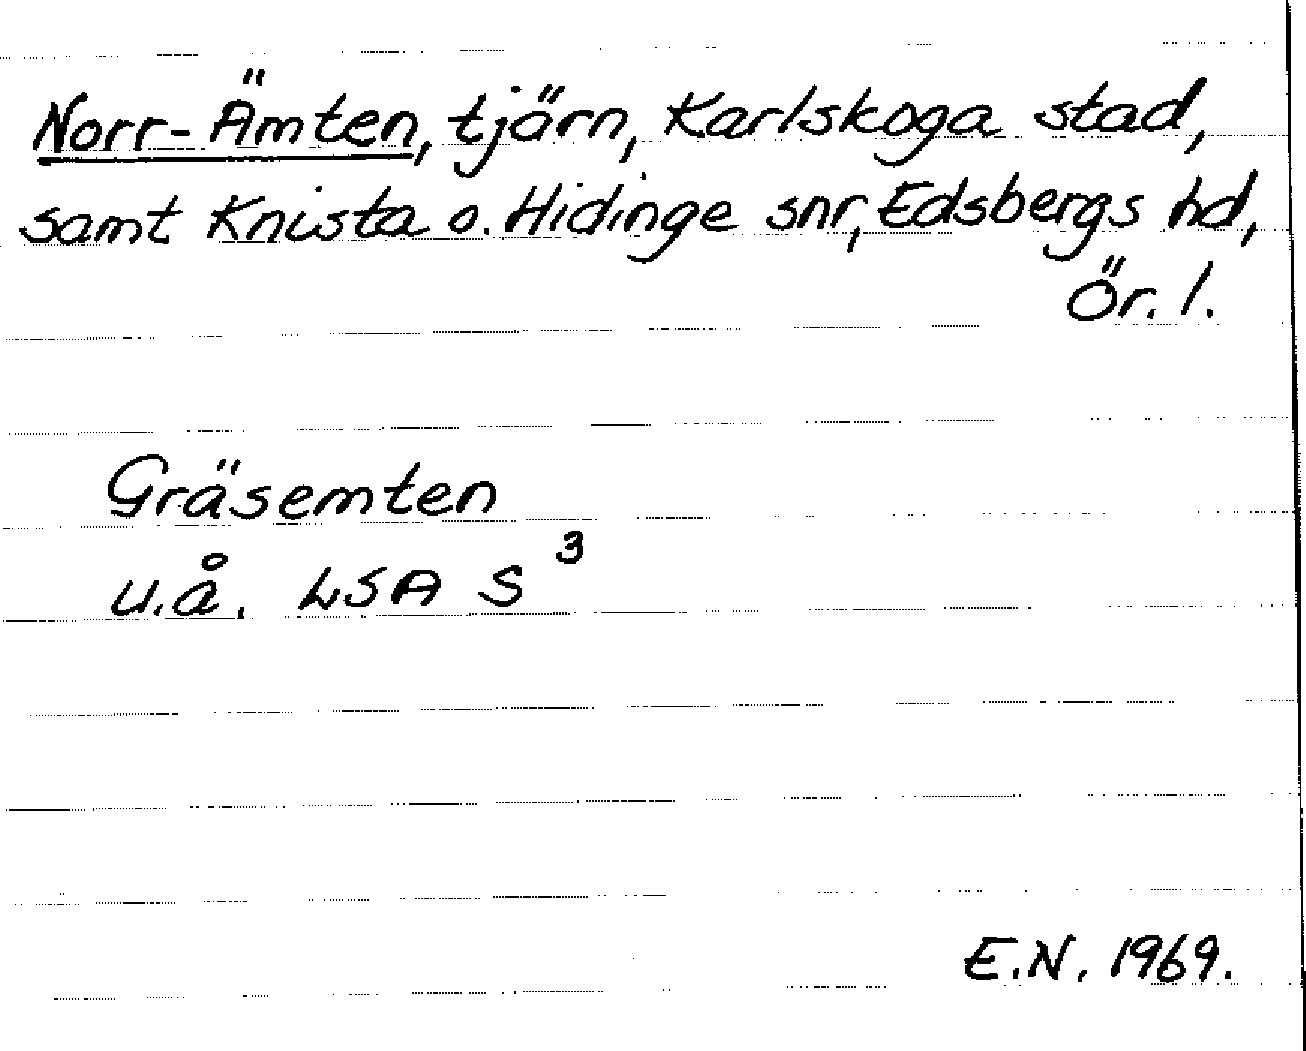 Norr-Ämten, tjärn, Karlskoga stad,
samt Knista o. Hidinge snr, Edsbergs hd,
Ör. l.
Gräsemten
u.å. LSA S³
E.N. 1969.